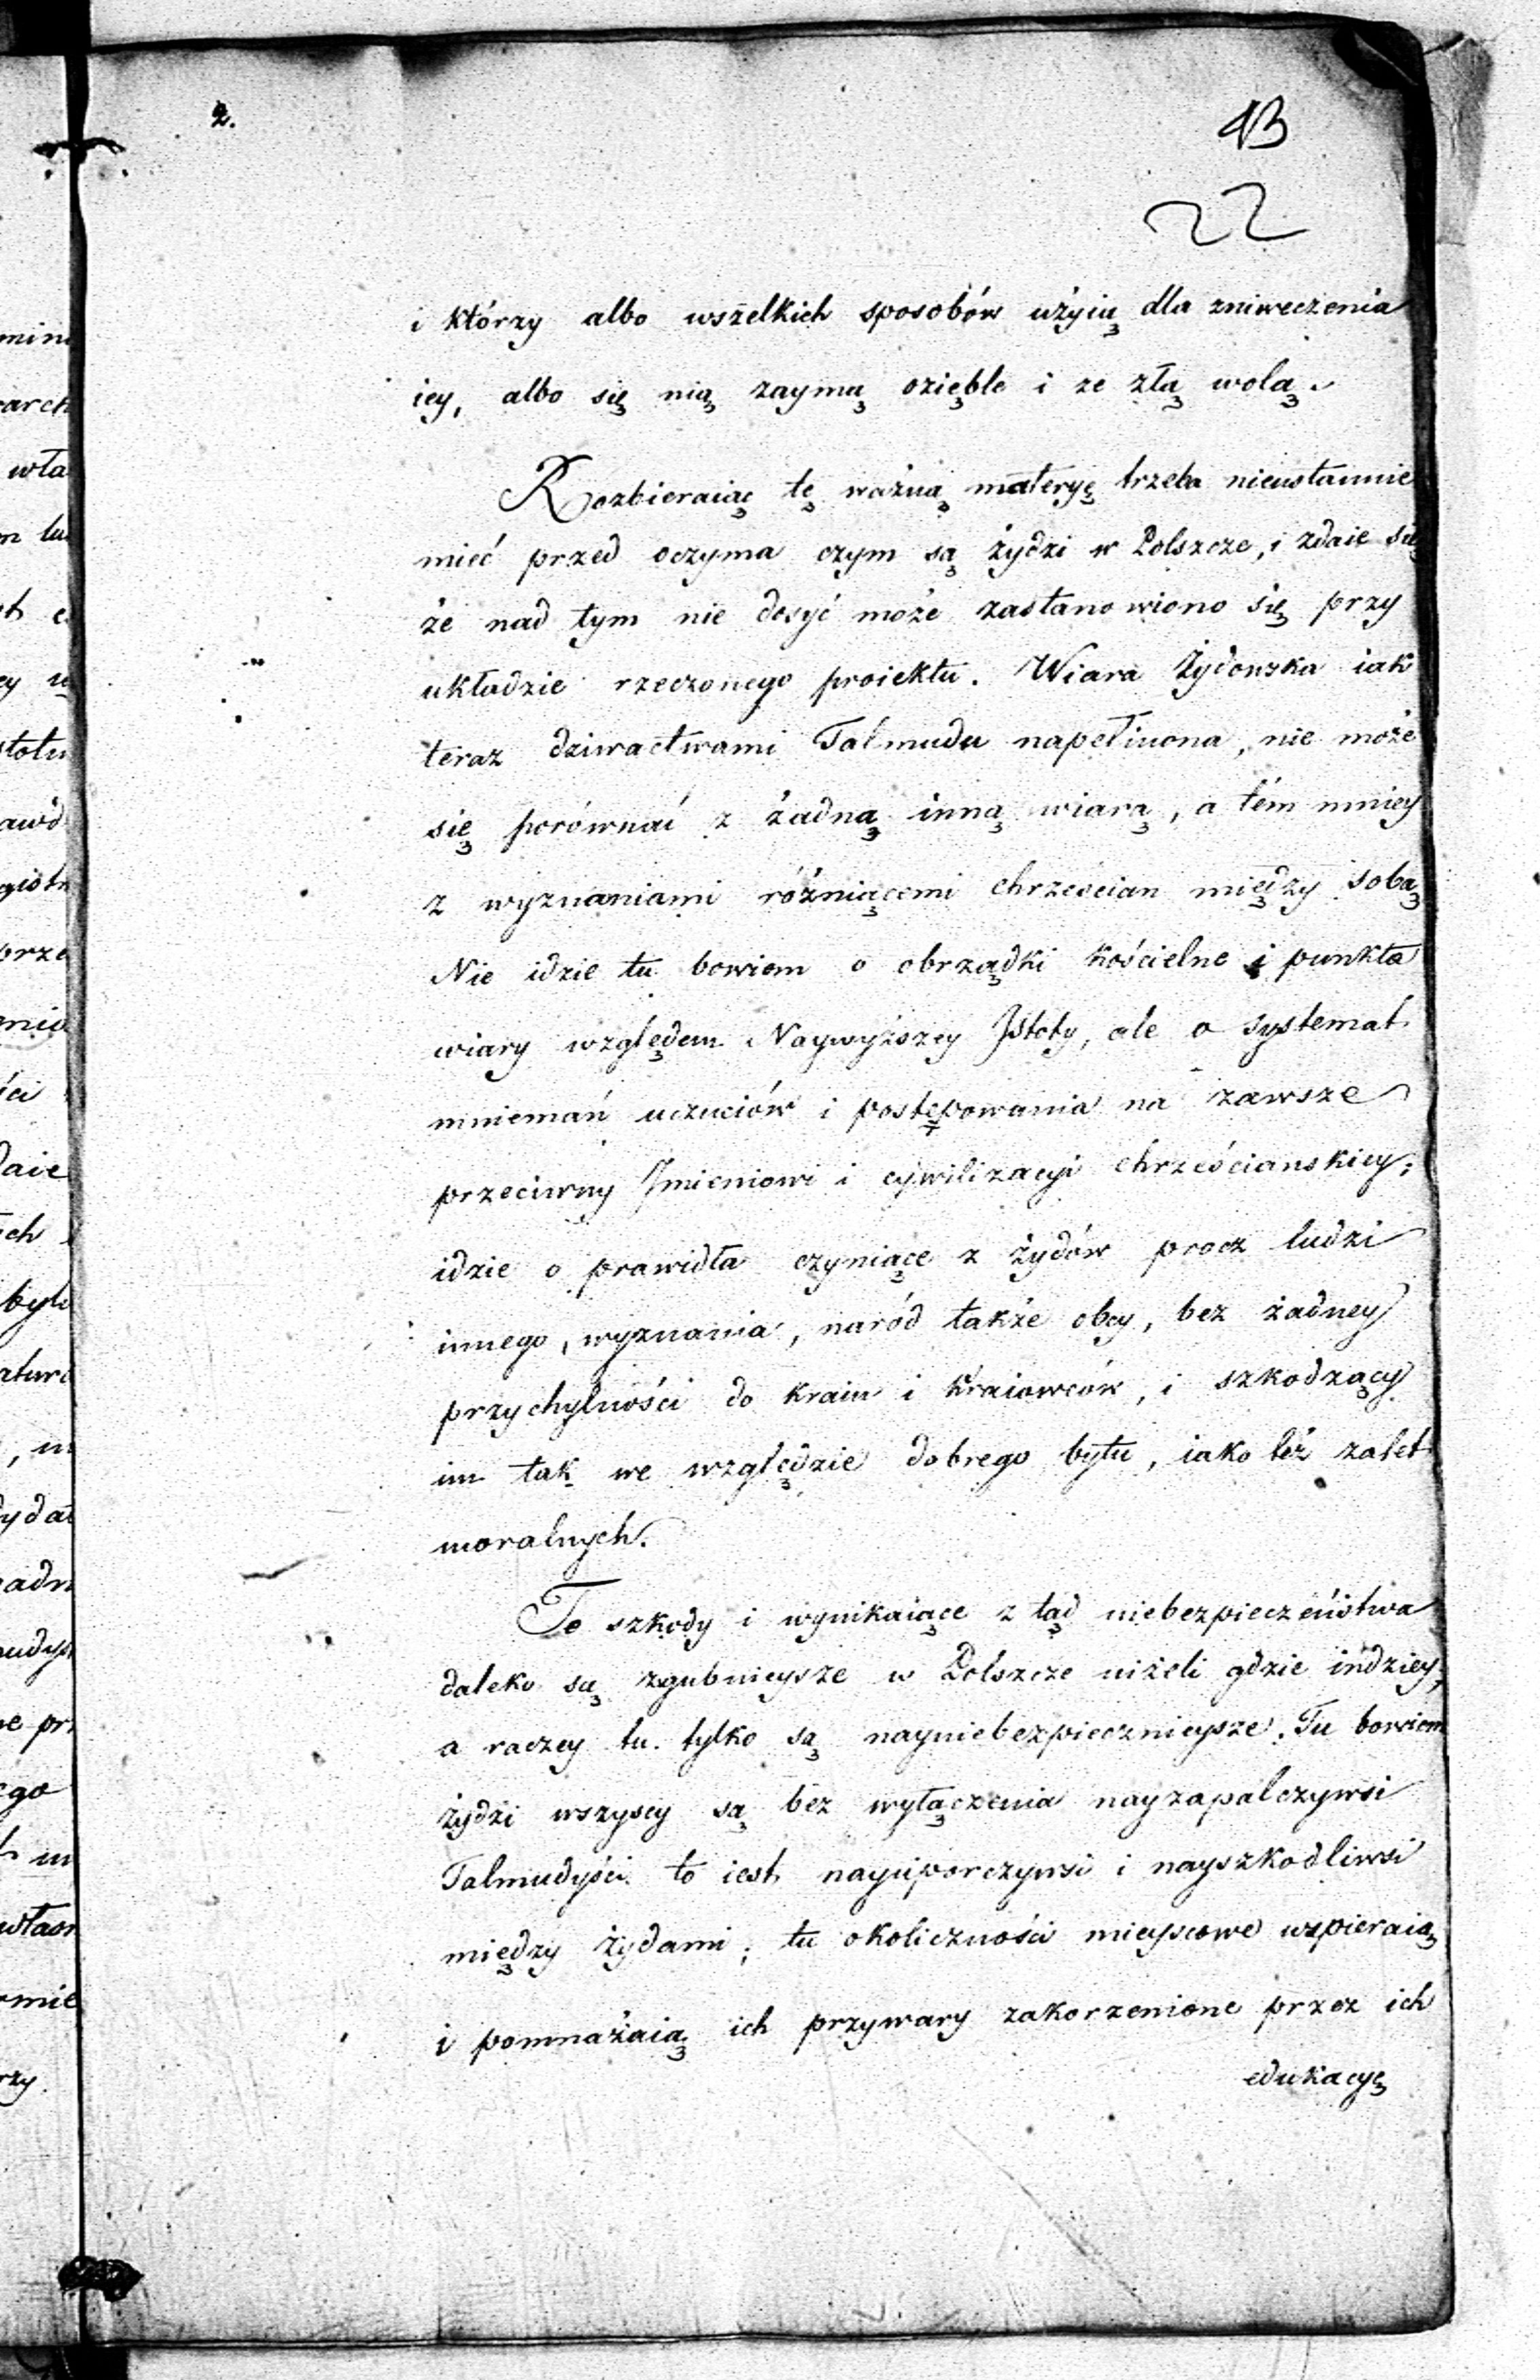 2.
13
22
i którzy albo wszelkich sposobów użyią dla zniweczenia
iey, albo się nią zaymą ozięble i ze złą wolą.
Rozbieraiąc tę ważną materyę trzeba nieustannie
mieć przed oczyma czym są żydzi w Polszcze, i zdaie się
że nad tym nie dosyć może zastanowiono się przy
układzie rzeczonego proiektu. Wiara Żydowska iak
teraz dziwactwami Talmudu napełniona, nie może
się porównać z żadną inną wiarą, a tém mniey
z wyznaniami różniącemi chrześcian między sobą
Nie idzie tu bowiem o obrządki kościelne i punkta
wiary względem Naywyższey Istoty, ale o systemat
mniemań uczuciów i postępowania na zawsze
przeciwny Imieniowi i cywilizacyi chrześcianskiey;
idzie o prawidła czyniące z żydów procz ludzi
innego, wyznania, naród także obcy, bez żadney
przychylności do kraiu i kraiowców, i szkodzący
im tak we względzie dobrego bytu, iako też zalet
moralnych.
Te szkody i wynikaiące z tąd niebezpieczeństwa
daleko są zgubnieysze w Polszcze niżeli gdzie indziey,
a raczey tu tylko są nayniebezpiecznieysze. Tu bowiem
żydzi wszyscy są bez wyłączenia nayzapalczywsi
Talmudyści to iest nayuporczywsi i nayszkodliwsi
między żydami; tu okoliczności mieyscowe wspieraią
i pomnażaią ich przywary zakorzenione przez ich
edukacyę